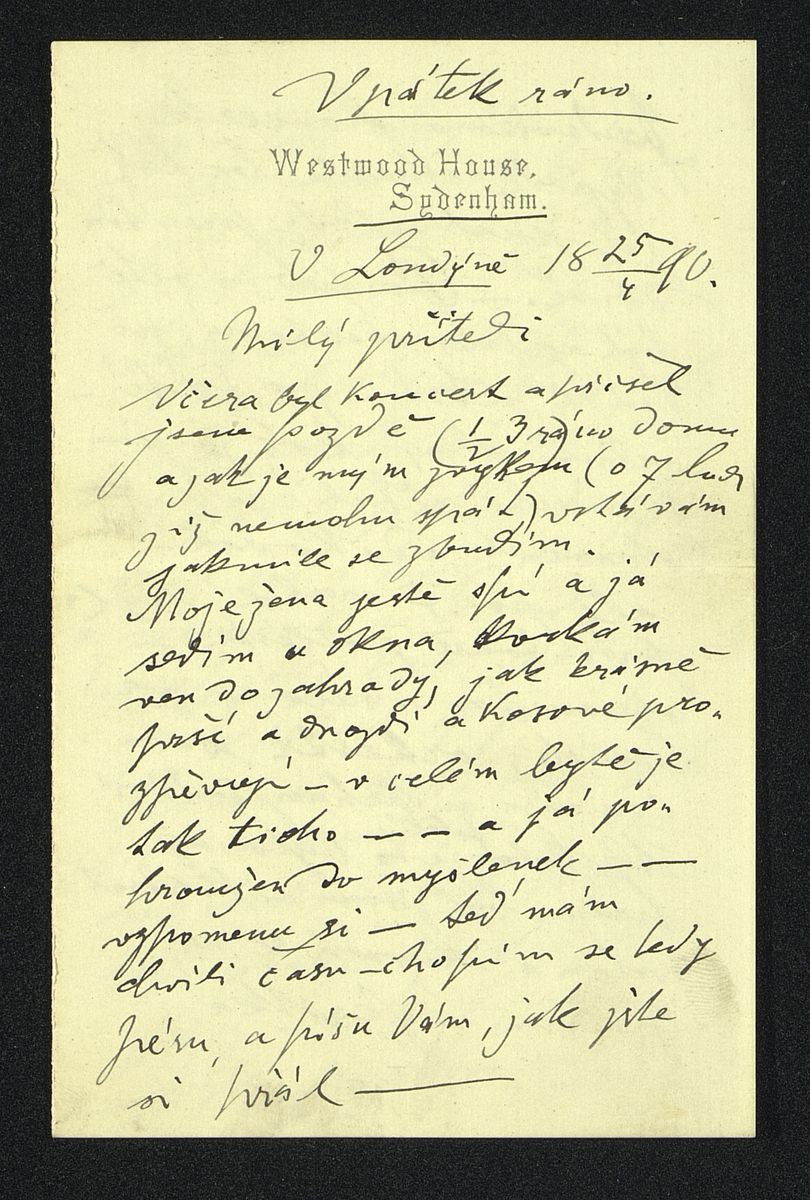 V pátek ráno.
Westwood House,
Sydenham.
V Londýně 18 25/4 90.
Milý příteli
Včera byl koncert a přišel
jsem pozdě (½ 3 ráno) domu
a jak je mým zvykem (o 7 hod
již nemohu spát) vstávám
jakmile se zbudím.
Moje žena jestě spí a já
sedím u okna, koukám
ven do zahrady, jak krásně
prší a drozdi a kosové pro-
zpěvují – v celém bytě je
tak ticho – – a já po-
hroužen do myšlenek – –
vzpomenu si – teď mám
chvíli času – chopím se tedy
péra, a píšu Vám, jak jste
si přál —